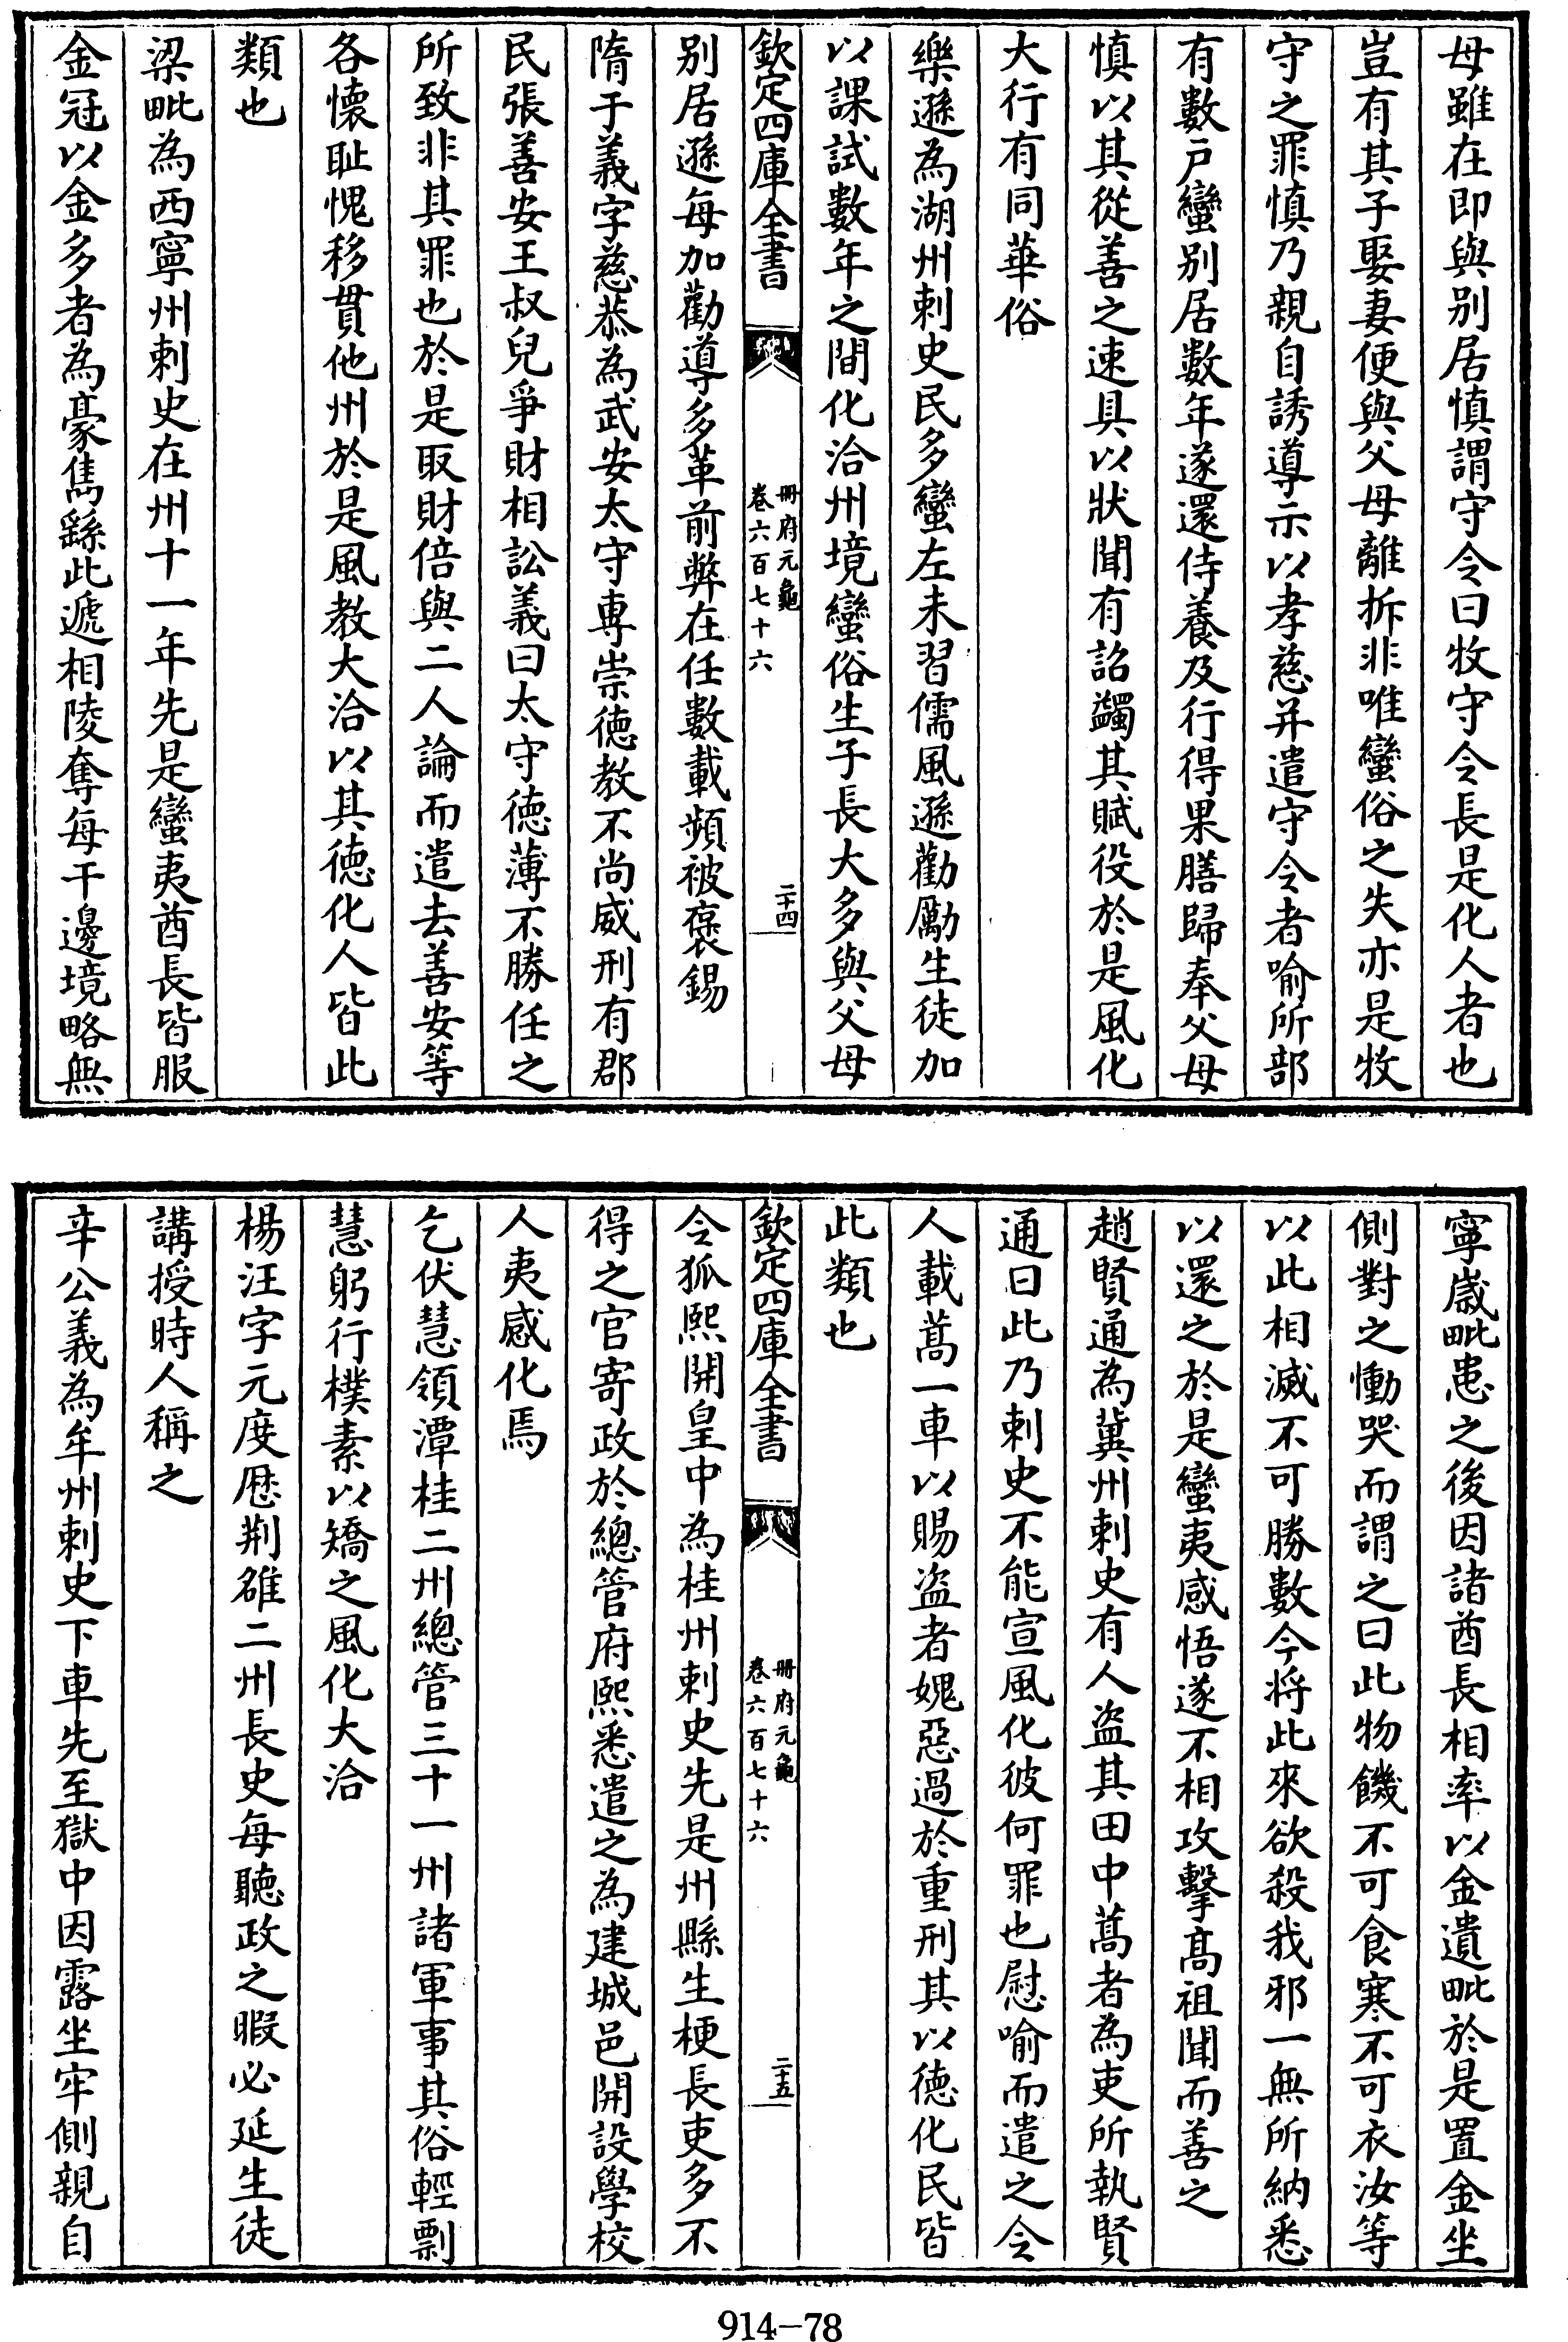 母雖在即與別居慎謂守令曰牧守令長是化人者也
豈有其子娶妻便與父母離拆非唯蠻俗之失亦是牧
守之罪慎乃親自誘導示以孝慈并遣守令者喻所部
有數戶蠻別居數年遂還侍養及行得果膳歸奉父母
慎以其從善之速具以狀聞有詔蠲其賦役於是風化
大行有同華俗
樂遜為湖州刺史民多蠻左未習儒風遜勸勵生徒加
以課試數年之間化洽州境蠻俗生子長大多與父母
欽定四庫全書
冊府元龜
卷六百七十六
二十四
別居遜每加勸導多革前弊在任數載頻被褒錫
隋于義字慈恭為武安太守專崇德教不尚威刑有郡
民張善安王叔兒爭財相訟義曰太守德薄不勝任之
所致非其罪也於是取財倍與二人論而遣去善安等
各懷恥愧移貫他州於是風教大洽以其德化人皆此
類也
梁毗為西寧州刺史在州十一年先是蠻夷酋長皆服
金冠以金多者為豪雋繇此遞相陵奪每干邊境略無
寧歲毗患之後因諸酋長相率以金遺毗於是置金坐
側對之慟哭而謂之曰此物饑不可食寒不可衣汝等
以此相滅不可勝數今將此來欲殺我邪一無所納悉
以還之於是蠻夷感悟遂不相攻擊高祖聞而善之
趙賢通為冀州刺史有人盜其田中蒿者為吏所執賢
通曰此乃刺史不能宣風化彼何罪也慰喻而遣之令
人載蒿一車以賜盜者媿惡過於重刑其以德化民皆
此類也
欽定四庫全書
冊府元龜
卷六百七十六
二十五
令狐熙開皇中為桂州刺史先是州縣生梗長吏多不
得之官寄政於總管府熙悉遣之為建城邑開設學校
人夷感化焉
乞伏慧領潭桂二州總管三十一州諸軍事其俗輕剽
慧躬行樸素以矯之風化大洽
楊汪字元度歷荊雒二州長史每聽政之暇必延生徒
講授時人稱之
辛公義為牟州刺史下車先至獄中因露坐牢側親自
914-78